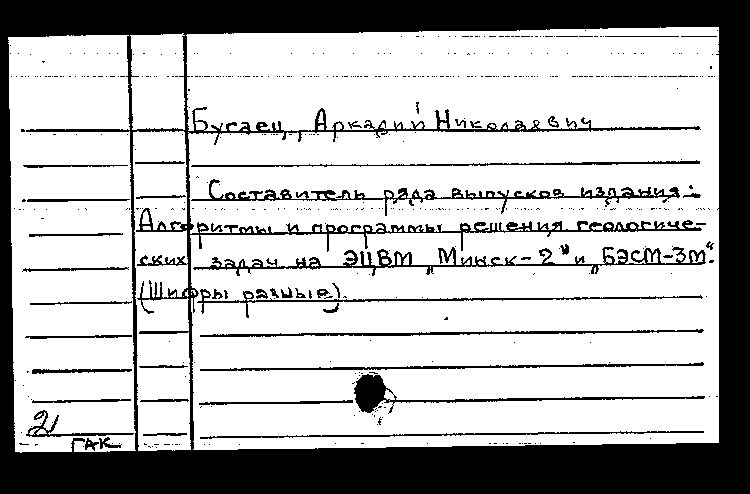 Бусаец, Аркадий Николаевич
Составитель ряда выпусков издания:
Алгоритмы и программы решения геологиче-
ских задач на ЭЦВМ „Минск-2" и „БЭСМ-3М".
(Шифры разные)
2
ГАК